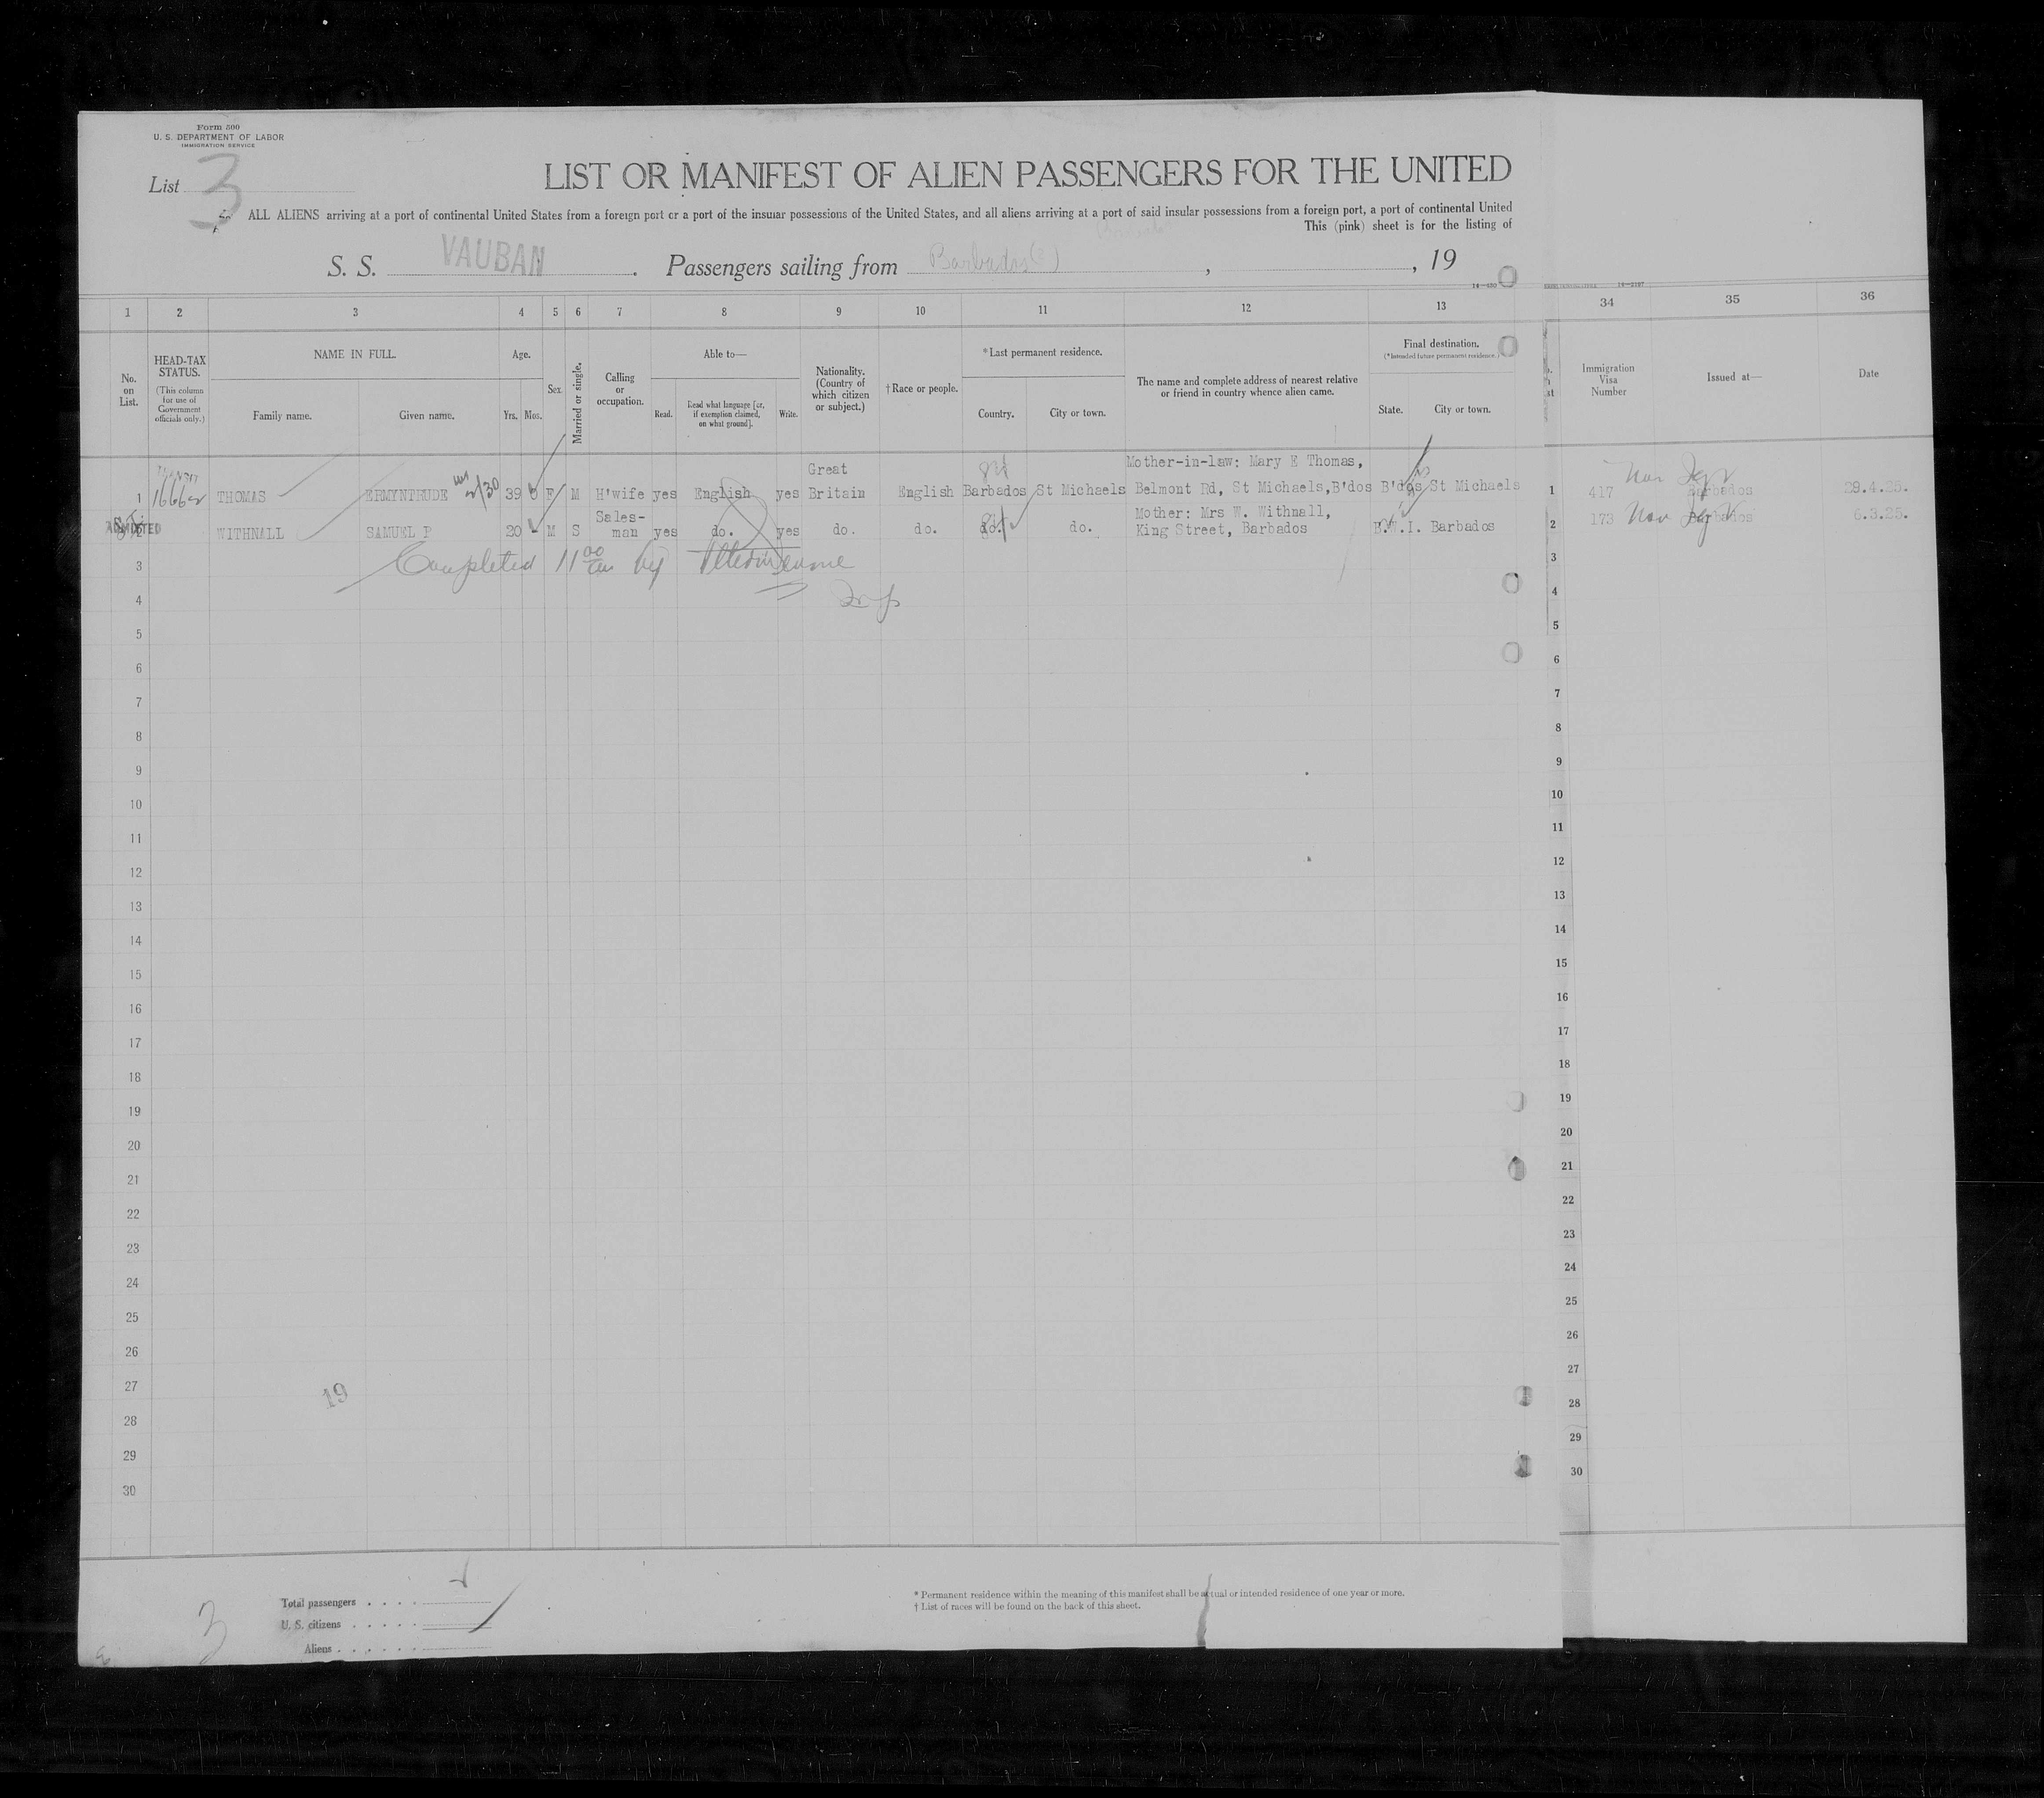 Form 500
U. S. DEPARTMENT OF LABOR
IMMIGRATION SERVICE
List 3
LIST OR MANIFEST OF ALIEN PASSENGERS FOR THE UNITED
ALL ALIENS arriving at a port of continental United States from a foreign port or a port of the insular possessions of the United States, and all aliens arriving at a port of said insular possessions from a foreign port, a port of continental United
This (pink) sheet is for the listing of
S. S. VAUBAN. Passengers sailing from Barbados , , 19
1 2 3 4 5 6 7 8 9 10 11 12 13 34 35 36
No. on List.
HEAD-TAX STATUS.
(This column for use of Government officials only.)
NAME IN FULL.
Family name. Given name.
Age.
Yrs. Mos.
Sex.
Married or single.
Calling or occupation.
Able to—
Read. Read what language [or, if exemption claimed, on what ground]. Write.
Nationality. (Country of which citizen or subject.)
†Race or people.
*Last permanent residence.
Country. City or town.
The name and complete address of nearest relative or friend in country whence alien came.
Final destination.
(*Intended future permanent residence.)
State. City or town.
Immigration Visa Number
Issued at—
Date
Great Mother-in-law: Mary E Thomas,
1 THOMAS ERMYNTRUDE 39 F M H'wife yes English yes Britain English Barbados St Michaels Belmont Rd, St Michaels, B'dos B'dos St Michaels 1 417 Barbados 29.4.25.
ADMITTED
Sales- Mother: Mrs W. Withnall,
2 WITHNALL SAMUEL P 20 M S man yes do. yes do. do. do. do. King Street, Barbados B.W.I. Barbados 2 173 Barbados 6.3.25.
3 Completed 11 00 am by 3
4 4
5 5
6 6
7 7
8 8
9 9
10 10
11 11
12 12
13 13
14 14
15 15
16 16
17 17
18 18
19 19
20 20
21 21
22 22
23 23
24 24
25 25
26 26
27 27
19
28 28
29 29
30 30
Total passengers . . . .
U. S. citizens . . . . .
Aliens . . . . . .
3
* Permanent residence within the meaning of this manifest shall be actual or intended residence of one year or more.
† List of races will be found on the back of this sheet.